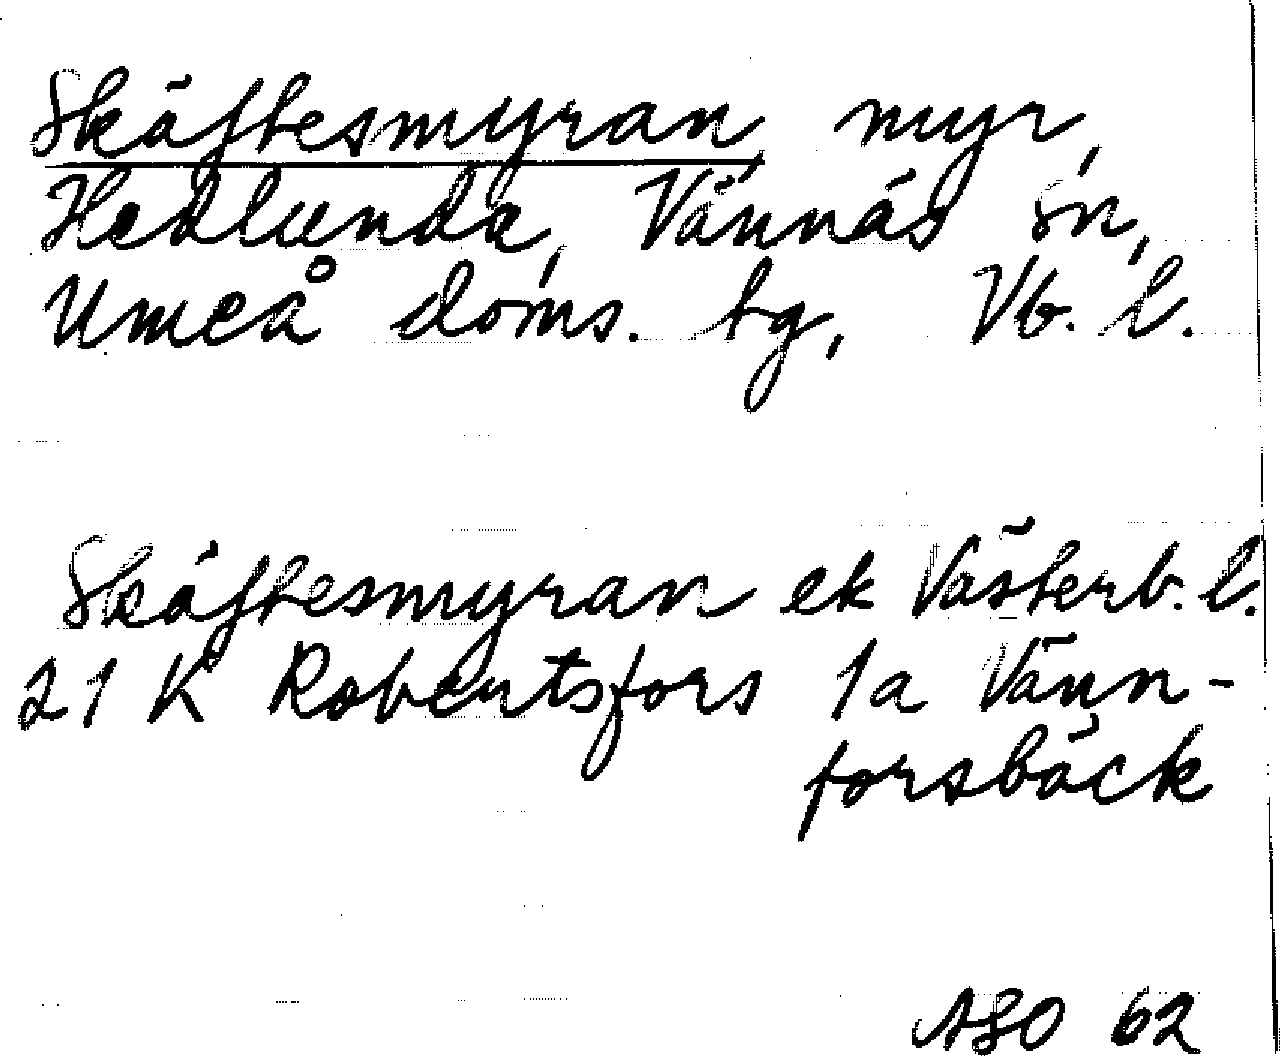 Skäftesmyran, myr,
Hedlunda, Vännäs sn,
Umeå doms. tg, Vb. l.
Skäftesmyran ek Västerb. l.
21 K Robertsfors 1a Vänn-
forsbäck
ASO 62